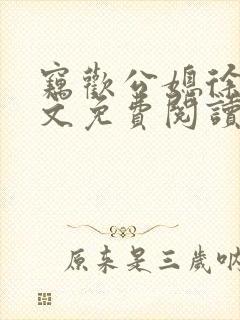 竊歡公媳徐
文免費閱讀
原来是三歲吶